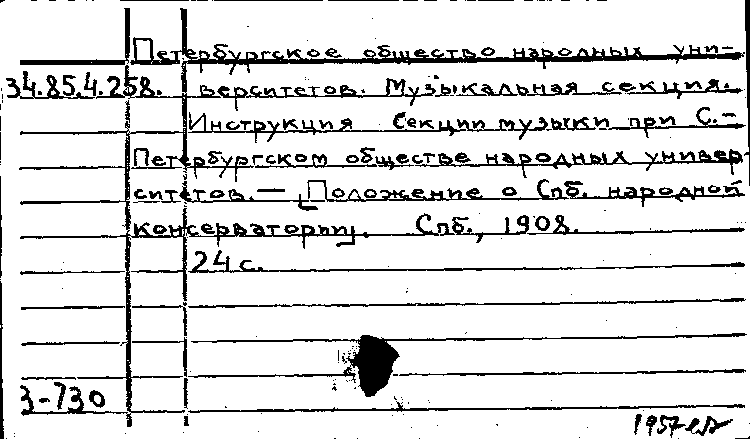 Петербургское общество народных уни-
34.85.4.258. верситетов. Музыкальная секция.
Инструкция Секции музыки при С.-
Петербургском обществе народных универ-
ситетов. — [Положение о Спб. народной
консерватории]. Спб., 1908.
24 с.
3-730
1957